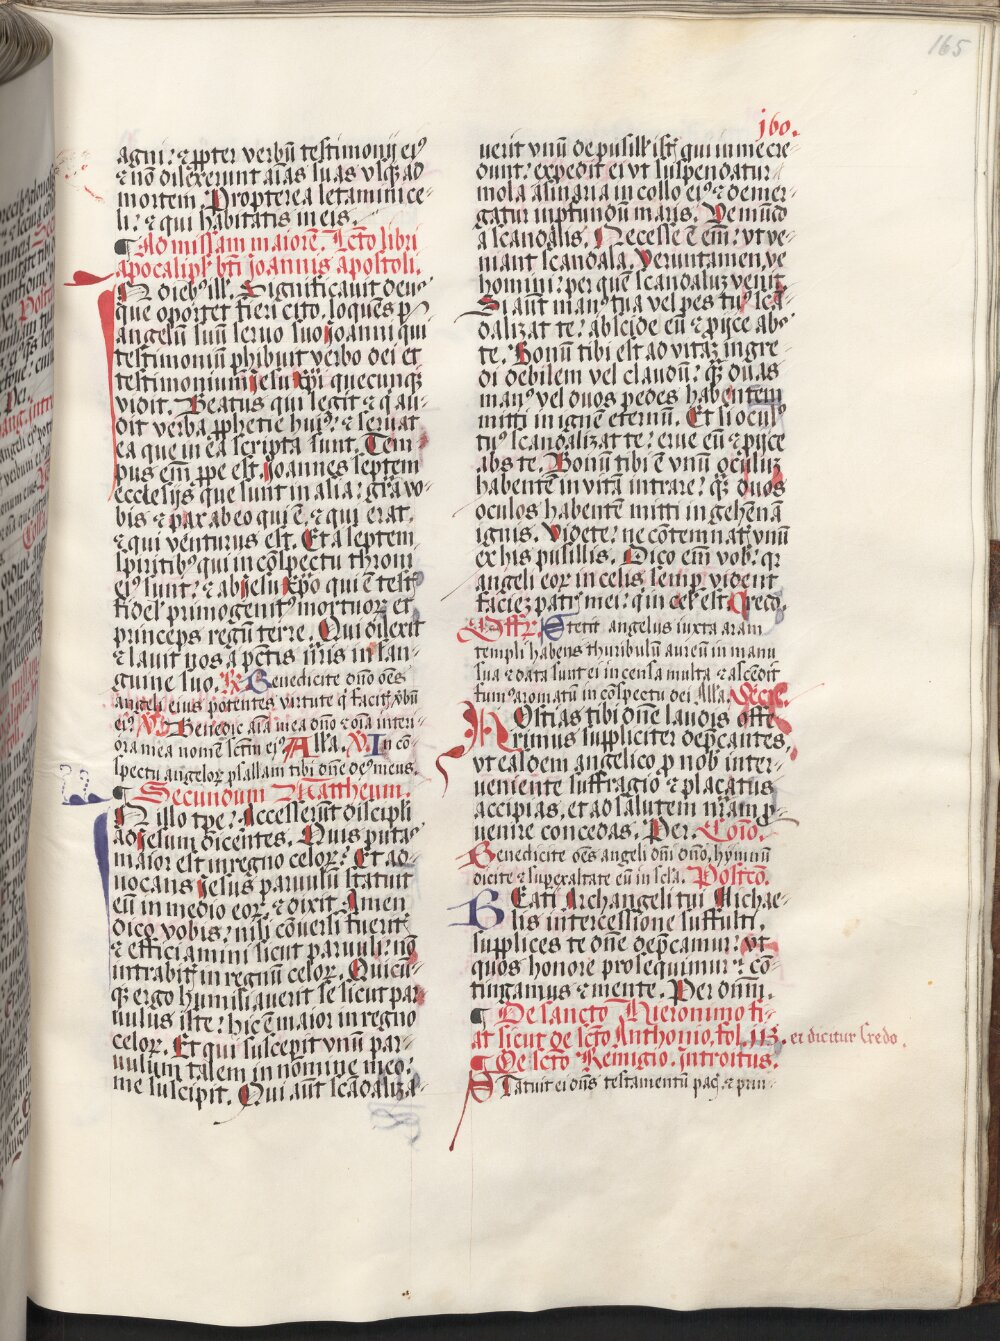 165
160.
agni: ⁊ ꝓpter verbū testimonij eiꝰ
⁊ nō dilexerunt aīas suas vsqꝫ ad
mortem. Propterea letamini ce-
li: ⁊ qui habitatis in eis.
¶ Ad missam maiorē. Lectō libri
apocalips̄ bt̄i joannis apostoli.
In diebꝰ ill̄. Significauit deus
que oportet fieri cito: loquēs ꝑ
angelū suū seruo suo joanni qui
testimoniū phibuit verbo dei et
testimonium jesu xp̄i quecunqꝫ
vidit. Beatus qui legit ⁊ q̇ au-
dit verba ꝓphetie huiꝰ: ⁊ seruat
ea que in ea scripta sunt. Tem-
pus em̄ ꝓpe est. Joannes septem
ecclesijs que sunt in asia: grā vo-
bis ⁊ pax ab eo qui ē, ⁊ qui erat,
⁊ qui venturus est. Et a septem
spiritibꝰ qui in cōspectu throni
eiꝰ sunt: ⁊ ab jesu xp̄o qui ē testꝭ
fidelꝭ primogenitꝰ mortuoꝝ et
princeps regū terre. Qui dilexit
⁊ lauit nos a pctīs nr̄is in san-
guine suo. R̄ Benedicite dn̄o oēs
angeli eius potentes virtute q̇ facitꝭ v̄bū
eiꝰ. ℣ Benedic aīa mea dn̄o ⁊ oīa interi-
ora mea nomē sctm̄ eiꝰ. Alla. ℣ In cō-
spectu angeloꝝ psallam tibi dn̄e deꝰ meus.
¶ Secundum Mattheum.
In illo tp̄e: Accesserūt discipli
ad jesum dicentes. Quis putas
maior est in regno celoꝝ? Et ad-
uocans jesus paruulū statuit
eū in medio eoꝝ ⁊ dixit. Amen
dico vobis: nisi cōuersi fueritꝭ
⁊ efficiamini sicut paruuli: nō
intrabitꝭ in regnū celoꝝ. Quicū-
qꝫ ergo humiliauerit se sicut par-
uulus iste: hic ē maior in regno
celoꝝ. Et qui susceperit vnū par-
uulum talem in nomine meo:
me suscipit. Qui aut̄ scādaliza-
uerit vnū de pusillꝭ istꝭ qui in me cre-
dunt: expedit ei vt suspendatur
mola asinaria in collo eiꝰ ⁊ demer-
gatur in ꝓfundū maris. Ve mūdo
a scandalis. Necesse ē em̄: vt ve-
niant scandala. Veruntamen ve
homini: per quē scandalū venit.
Si aut̄ manꝰ tua vel pes tuꝰ scā-
dalizat te: abscide eū ⁊ ꝓijce abs
te. Bonū tibi est ad vitaꝫ ingre-
di debilem vel claudū: qꝫ duas
manꝰ vel duos pedes habentem
mitti in ignē eternū. Et si oculꝰ
tuꝰ scandalizat te: erue eū ⁊ ꝓijce
abs te. Bonū tibi ē vnū oculuꝫ
habentē in vitā intrare: qꝫ duos
oculos habentē mitti in gehēnā
ignis. Videte: ne cōtemnatꝭ vnū
ex his pusillis. Dico em̄ vob̄: qꝛ
angeli eoꝝ in celis semꝑ vident
facieꝫ patrꝭ mei: qui in celꝭ est. Credo.
Offr̄. Stetit angelus iuxta aram
templi habens thuribulū aureū in manu
sua ⁊ data sunt ei incensa multa ⁊ ascēdit
fumꝰ aromatū in cōspectu dei. Alla. Secr̄.
Hostias tibi dn̄e laudis offe-
rimus suppliciter dep̄cantes,
vt easdem angelico ꝓ nob̄ inter-
ueniente suffragio ⁊ placatus
accipias, et ad salutem nr̄am ꝓ-
uenire concedas. Per. Com̄o.
Benedicite oēs angeli dn̄i dn̄o, hymnū
dicite ⁊ suꝑexaltate eū in scl̄a. Postcō.
Beati Archangeli tui Micha-
lis intercessione suffulti,
supplices te dn̄e dep̄camur: vt
quos honore prosequimur ⁊ cō-
tingamus ⁊ mente. Per dn̄m.
¶ De sancto Hieronymo fi-
at sicut de scto Anthonio, fol. 113. et dicitur Credo.
¶ De scto Remigio. Introitus.
Statuit ei dn̄s testamentū pacꝭ ⁊ prin-